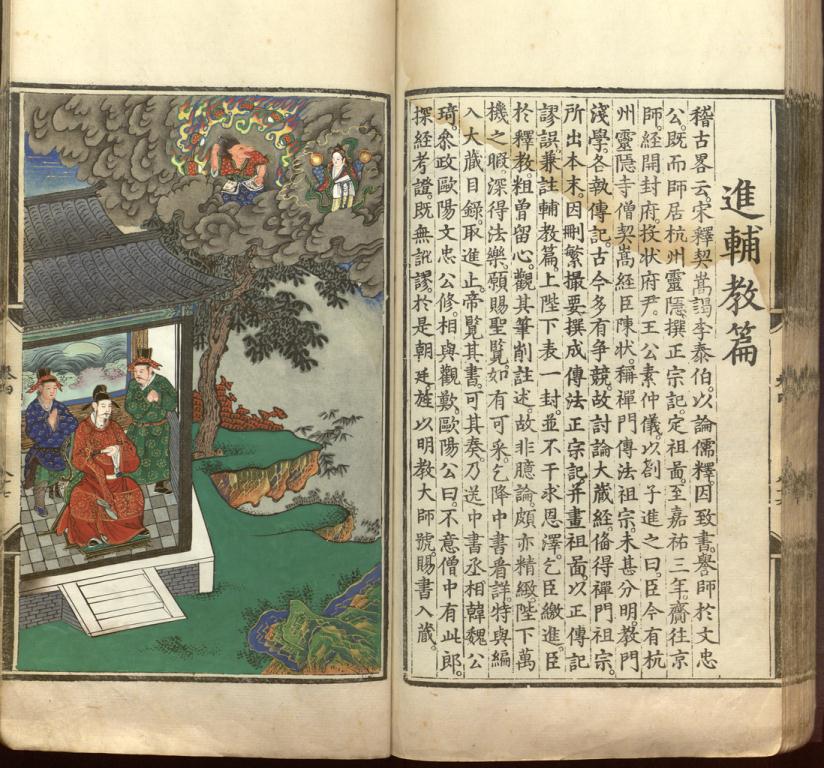 進輔教篇
稽古畧云。宋釋契嵩謁李泰伯。以論儒釋。因致書。譽師於文忠
公。既而師居杭州靈隱。撰正宗記。定祖啚。至嘉祐三年。齎往京
師。經開封府。投狀府尹。王公素仲儀。以劄子進之曰。臣今有杭
州靈隱寺僧契嵩。經臣陳狀。稱禪門傳法祖宗。未甚分明。教門
淺學。各執傳記。古今多有爭競。故討論大藏經。俻得禪門祖宗。
所出本末。因刪繁撮要。撰成傳法正宗記。并畫祖啚。以正傳記
謬誤。兼註輔教篇。上陛下表一封。並不干求恩澤。乞臣繳進。臣
於釋教。粗曾留心。觀其筆削註述。故非臆論。頗亦精緻。陛下萬
機之暇。深得法樂。願賜聖覽。如有可采。乞降中書看詳。特與編
入大藏目録。取進止。帝覽其書。可其奏。乃送中書丞相韓魏公
琦。叅政歐陽文忠公修。相與觀歎。歐陽公曰。不意僧中有此郎。
探經考證。既無訛謬。於是朝廷旌以明教大師號。賜書入藏。